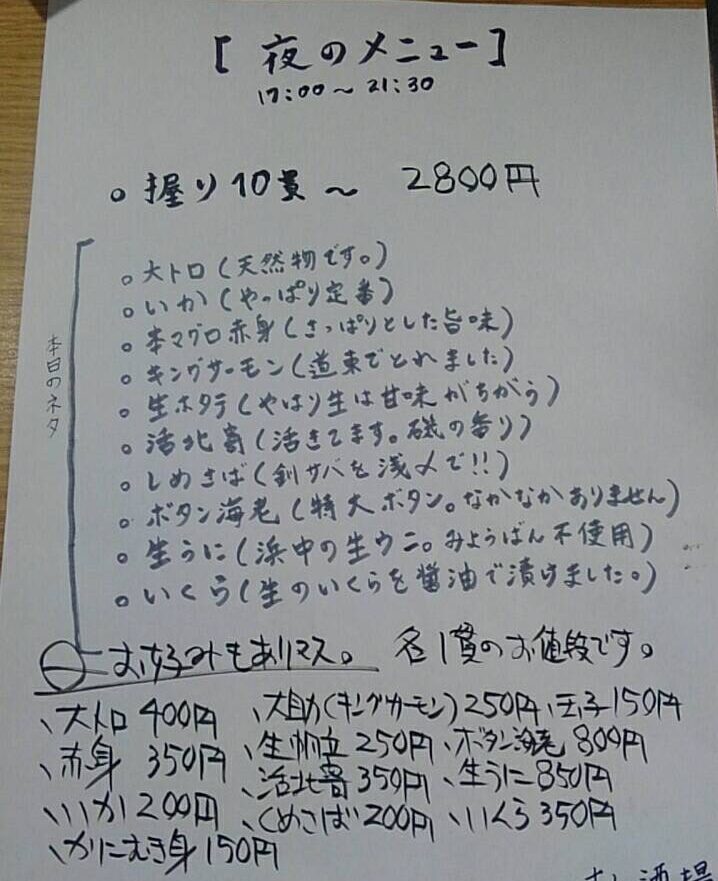 [ 夜のメニュー ]
17:00～21:30
。握り10貫～ 2800円
本日のネタ
。大トロ(天然物です。)
。いか(やっぱり定番)
。本マグロ赤身(さっぱりとした旨味)
。キングサーモン(道東でとれました)
。生ホタテ(やはり生は甘味がちがう)
。活北寄(活きてます。磯の香り)
。しめさば(釣サバを浅〆で!!)
。ボタン海老(特大ボタン。なかなかありません)
。生うに(浜中の生ウニ。みょうばん不使用)
。いくら(生のいくらを醤油で漬けました。)
おすみもありマス。 各1貫のお値段です。
、大トロ 400円 、大助(キングサーモン)250円 、玉子150円
、赤身 350円 、生帆立 250円 、ボタン海老 800円
、いか 200円 、活北寄 350円 、生うに 850円
、かにむき身 150円 、しめさば 200円 、いくら 350円
酒場